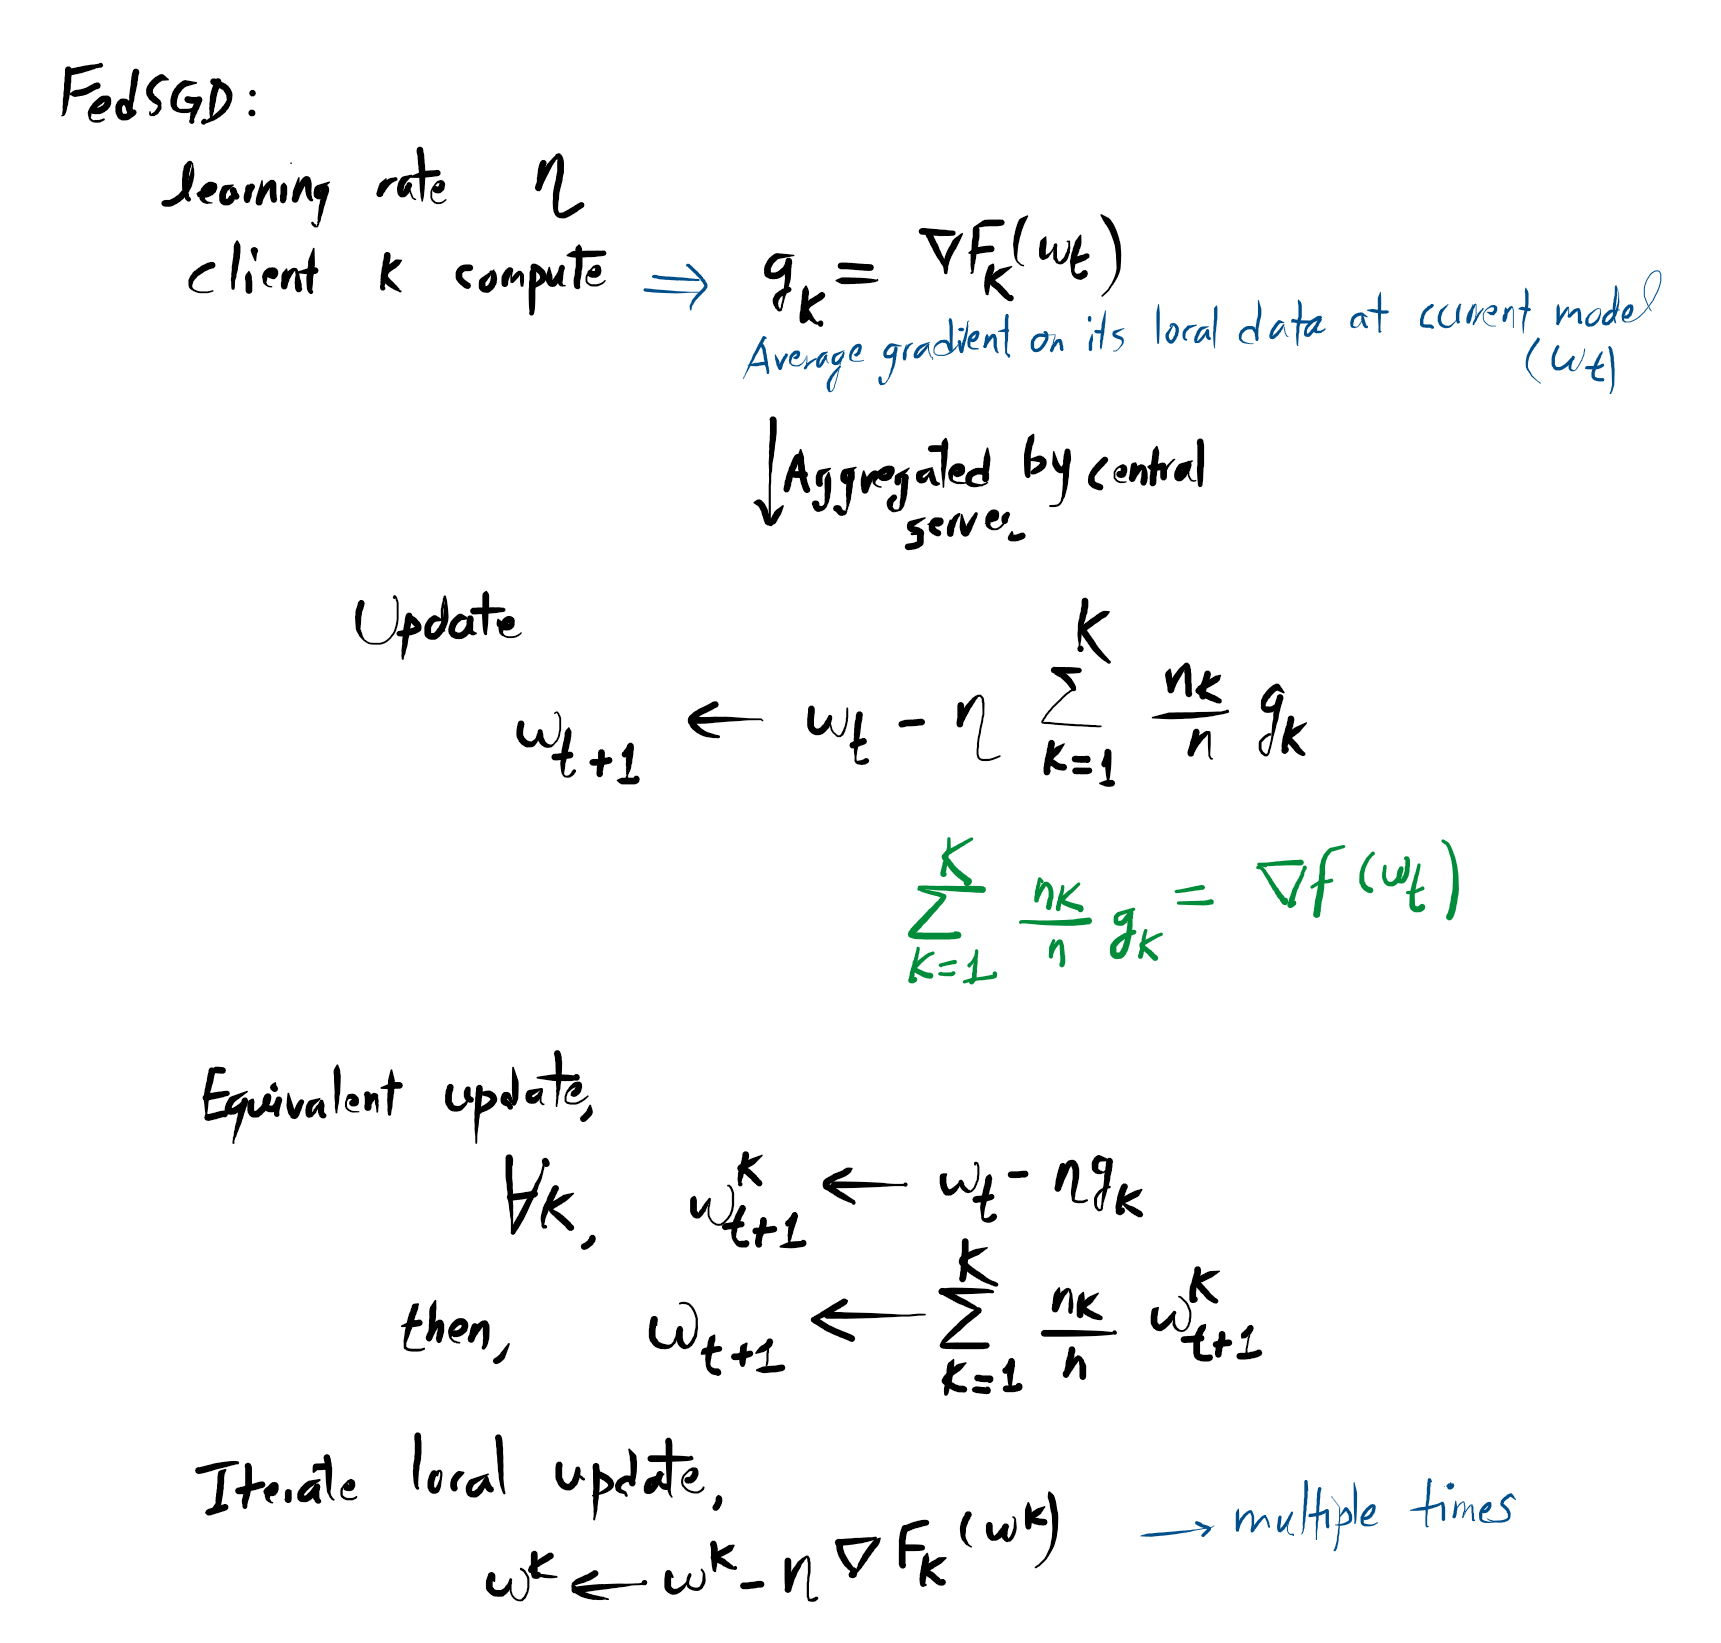 FedSGD:
learning rate η
client k compute ⇒ g_k = ∇F_k(w_t)
Average gradient on its local data at current model
(w_t)
↓ Aggregated by central
server
Update
w_{t+1} ← w_t - η ∑_{k=1}^{K} n_k/n g_k
∑_{k=1}^{K} n_k/n g_k = ∇f(w_t)
Equivalent update,
∀k, w_{t+1}^k ← w_t - η g_k
then, w_{t+1} ← ∑_{k=1}^{K} n_k/n w_{t+1}^k
Iterate local update,
w^k ← w^k - η ∇F_k(w^k) → multiple times